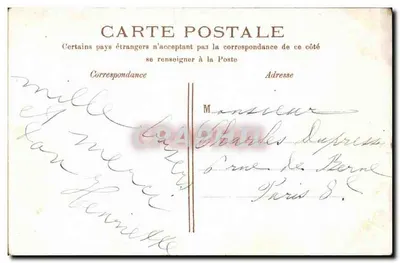 CARTE POSTALE
Certains pays étrangers n'acceptant pas la correspondance de ce côté
se renseigner à la Poste
Correspondance
Adresse
mille baisers
et merci
ton
Henriette
Monsieur
Charles Dupressi
6 rue de Berne
Paris 8.